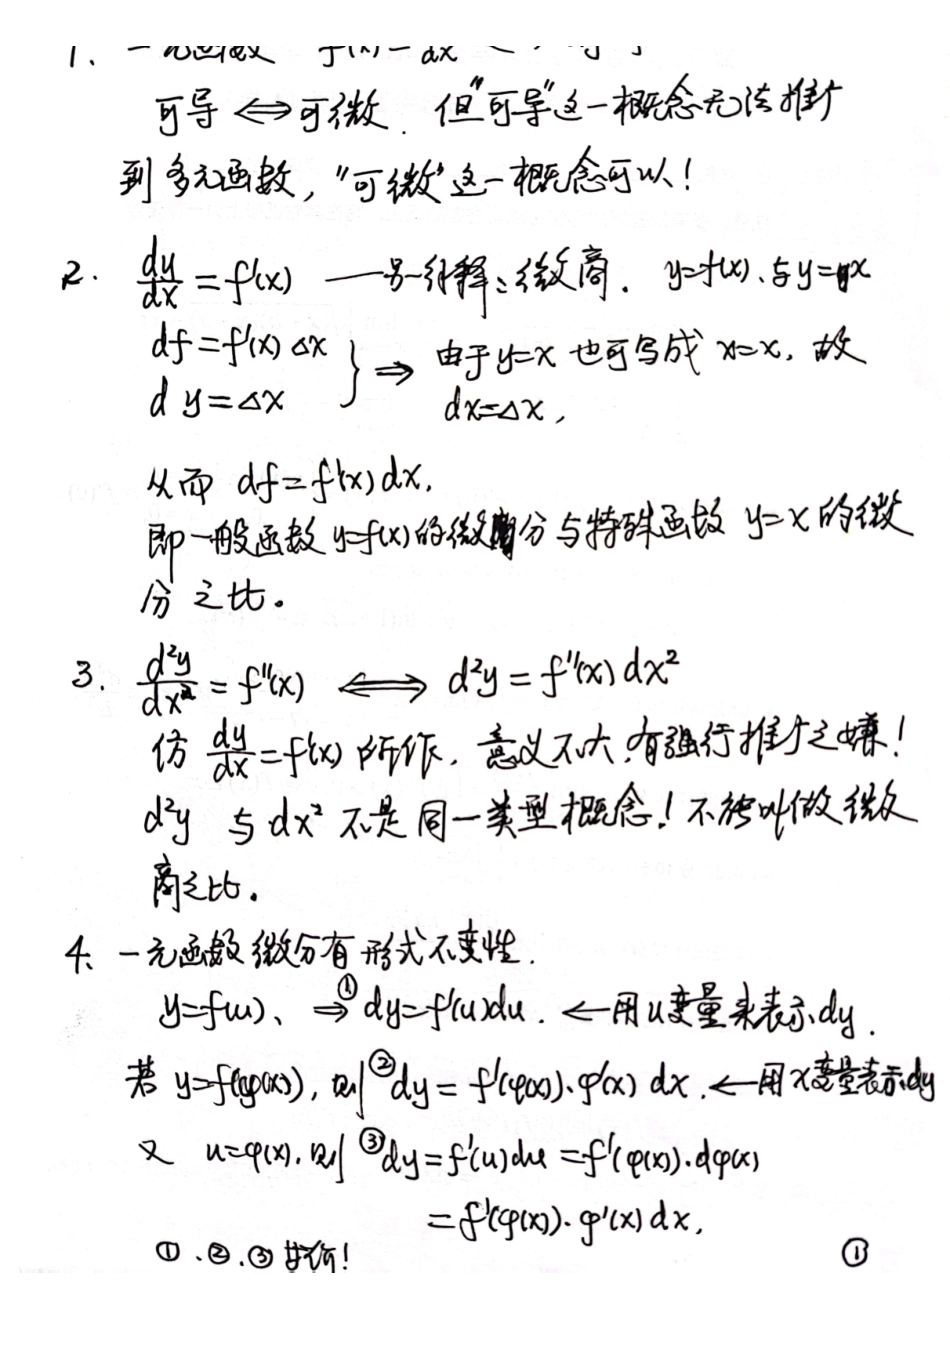 1、一元函数 f'(x)=
可导 ⟺ 可微. 但"可导"这一概念无法推广
到多元函数，"可微"这一概念可以！
2. dy/dx = f'(x) ——另一解释：微商. y=f(x)、与y=x
df=f'(x)Δx
dy=Δx } ⇒ 由于y=x 也可写成 x=x, 故
dx=Δx,
从而 df=f'(x)dx.
即一般函数y=f(x)的微分与特殊函数 y=x的微
分之比。
3. d²y/dx² = f''(x) ⟺ d²y=f''(x)dx²
仿 dy/dx=f'(x) 所作, 意义不大, 有强行推广之嫌！
d²y 与 dx² 不是同一类型概念！不能叫做微
商之比。
4、一元函数微分有形式不变性.
y=f(u)、⇒① dy=f'(u)du. ←用u变量来表示dy.
若 y=f(φ(x)), 则②dy=f'(φ(x))·φ'(x)dx. ←用x变量表示dy
又 u=φ(x), 则③dy=f'(u)du=f'(φ(x))·dφ(x)
=f'(φ(x))·φ'(x)dx,
①、②、③等价！ ①